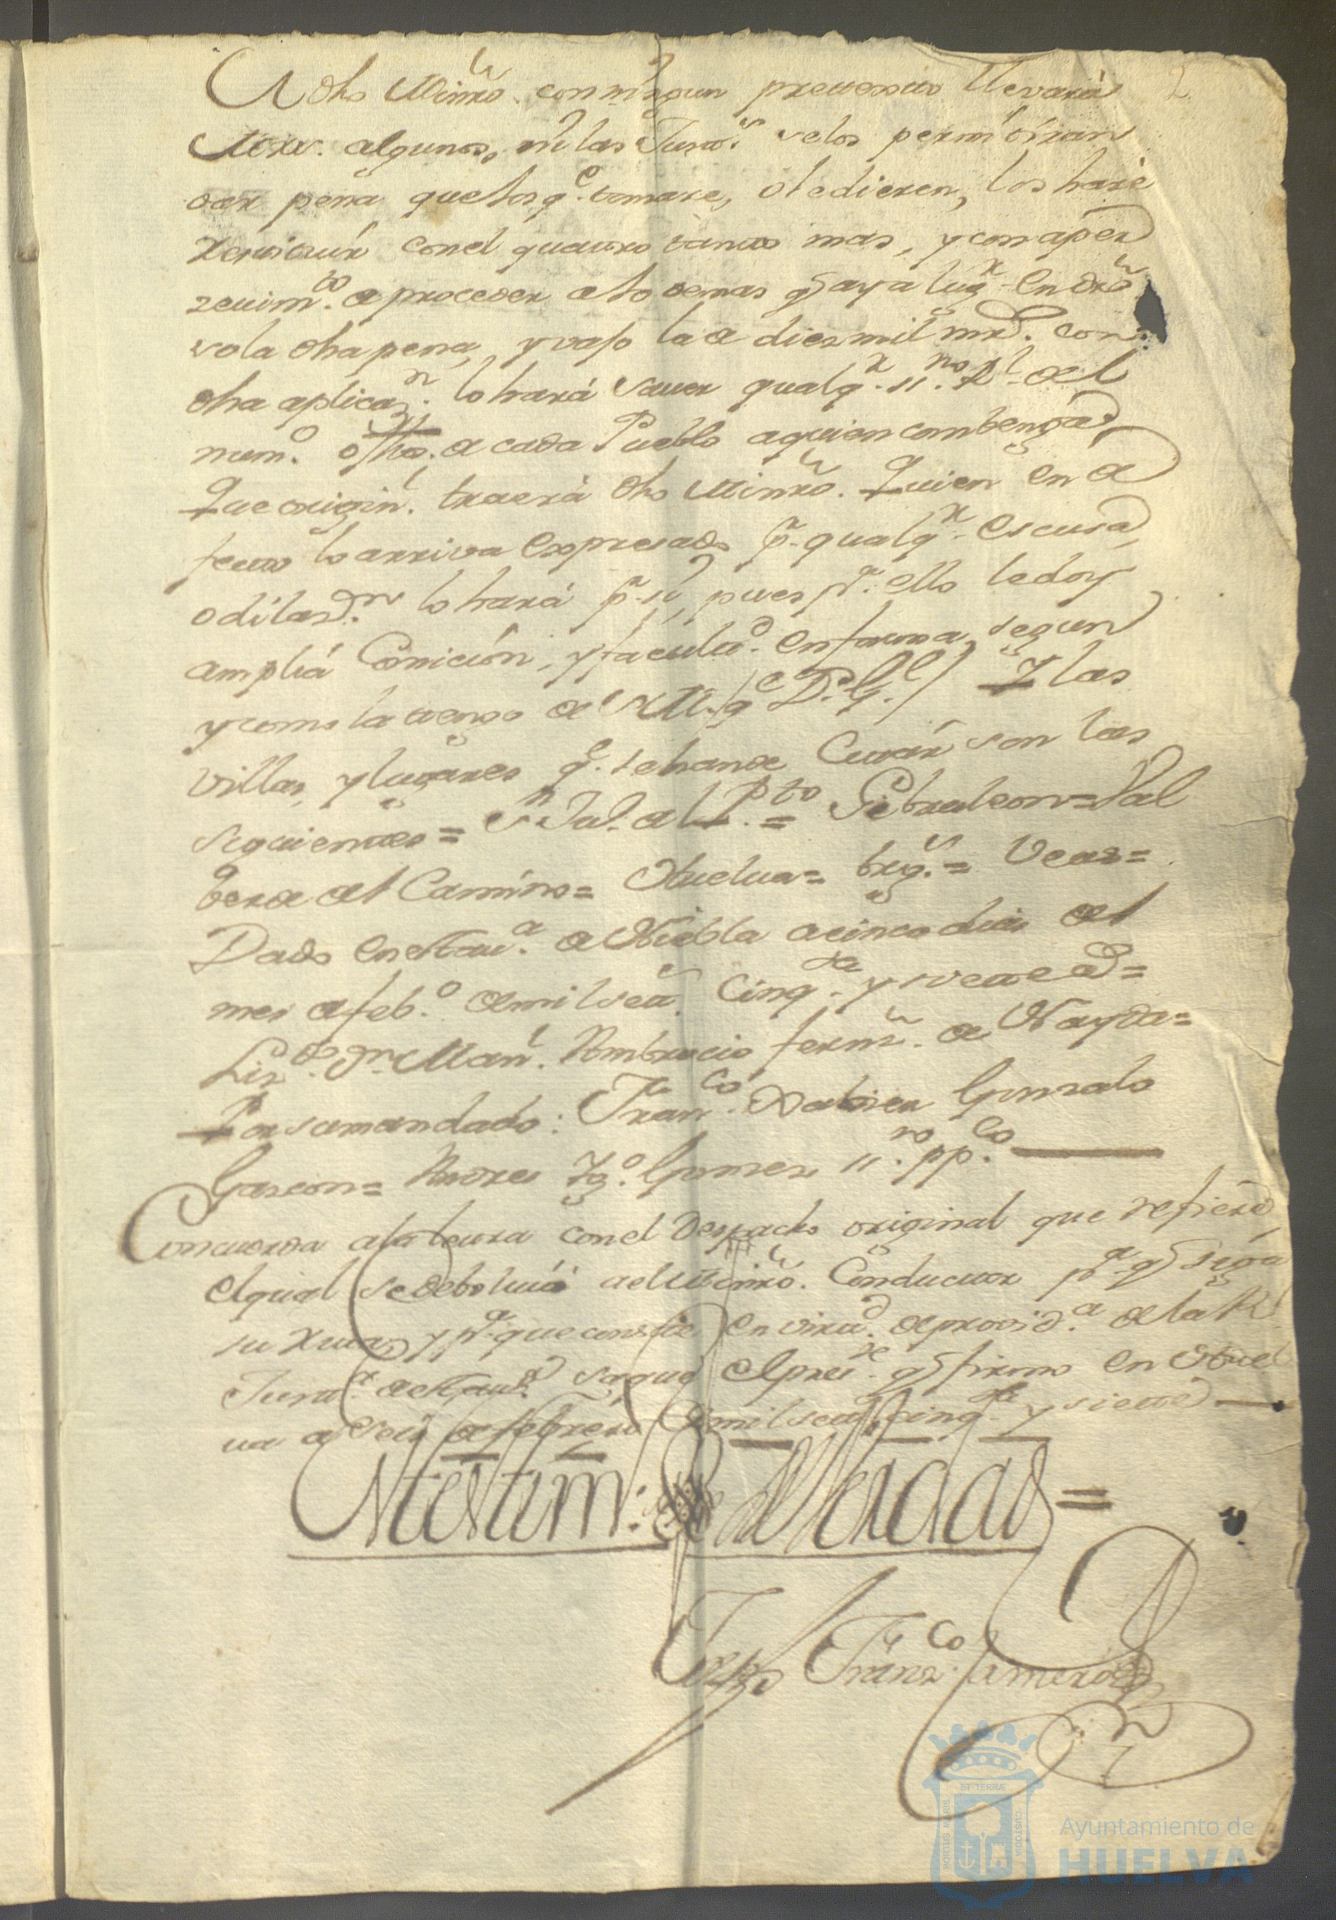 dho Ministro. con ningun pretexto llevará 2
Mrv. algunos, ni las Justs. se los permitiran
dar pena que los q.e tomare, o le dieren, los hare
restituir con el quatro tanto mas, y con aper
zevim.to a proceder a lo demas q aya lug.r en dro
so la dha pena, y vajo la de diez mil mrs. con
dha aplicaz.n lo hará saver qualq.r ss.no Rl. del
num.o o fho. de cada Pueblo a quien combenga
Que origin. traerá dho Ministro. Quien en e
fecto lo arriva expresado p.r qualq.r escusa,
o dilaz.n lo hará p.r si, pues p.a ello le doy
amplia Comición, y facultd. en forma, segun
y como la tengo de S.M. (q.e D.s G.e) Y las
villas, y lugares q.e se han de Corrér son las
siguientes = S.n Ju.n del P.to = Gibraleon = Val
berde del Camino = Huelua = Trig.s = Veas =
Dado en esta v.a de Niebla a cinco dias del
mes de feb.o de mil setz. cinq.ta y siete a.s =
Liz.do D.n Man. Ambrocio ferm.n de Nayda =
Por su mandado: Fran.co Xabier Gonzalo
Garzon = Andres Ig.o Gomez ss.no pp.co
Concuerda a la letra con el Despacho original que refiero
el qual se debolvió a el Ministro. Conductor p.a q siga
su ruta, y p.a que conste en virtd. de provid.a de la R.l
Just.a de esta v.a saque el pres.te q firmo en Huel
va a seis de febrero de mil setz. cinq.ta y siete
En testim.o de Verdad =
Franz.co Camero
Ayuntamiento de
HUELVA